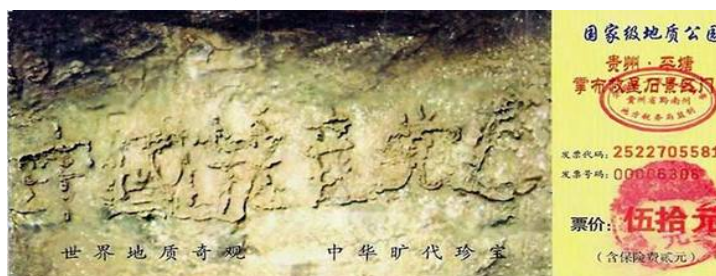 中国共产党亡
世界地质奇观 中华旷代珍宝
国家级地质公园
贵州·平塘
掌布救星石景区门
贵州省黔南州
地方税务局监制
发票代码：2522705581
发票号码：00006306
票价：伍拾元
（含保险费贰元）